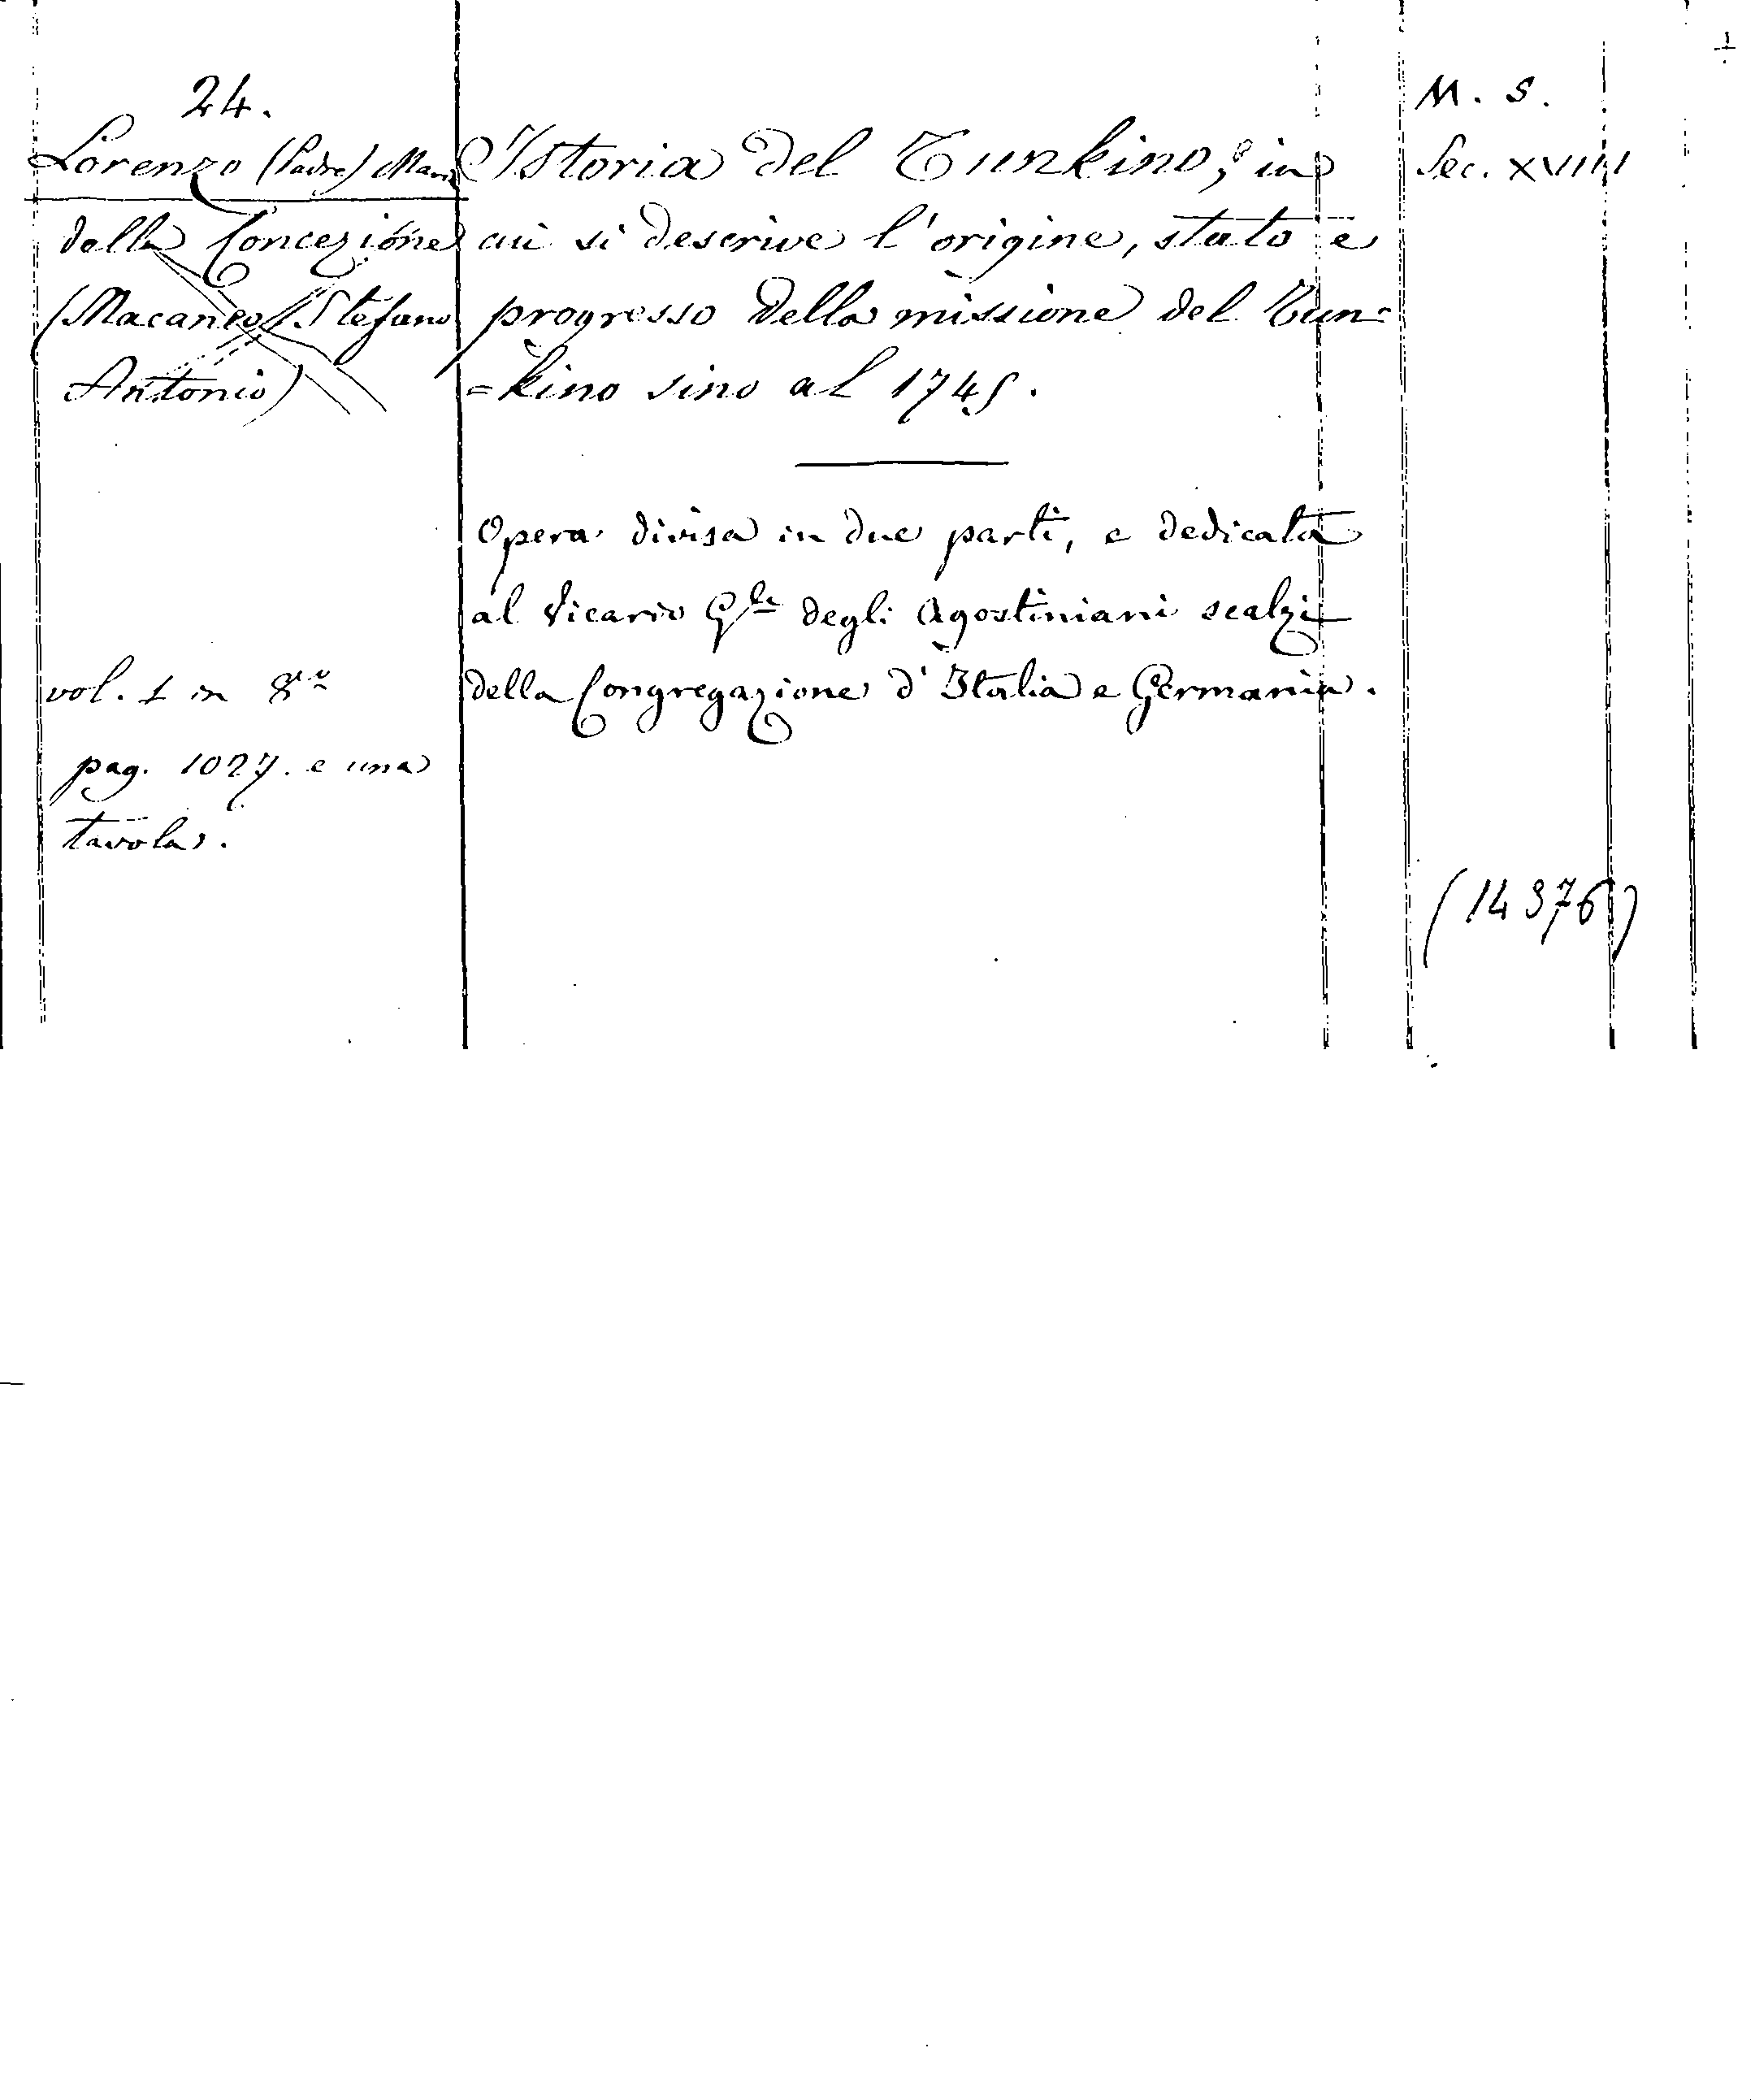 24.
Lorenzo (Padre) Maria
della Concezione
(Macaneo Stefano
Antonio)
vol. 1 in 8.º
pag. 1027. e una
tavola.
Istoria del Tunkino, in
cui si descrive l'origine, stato e
progresso della missione del Tun=
=kino sino al 1745.
Opera divisa in due parti, e dedicata
al Vicario Gle degli Agostiniani scalzi
della Congregazione d'Italia e Germania.
M. S.
Sec. XVIII
(14376)